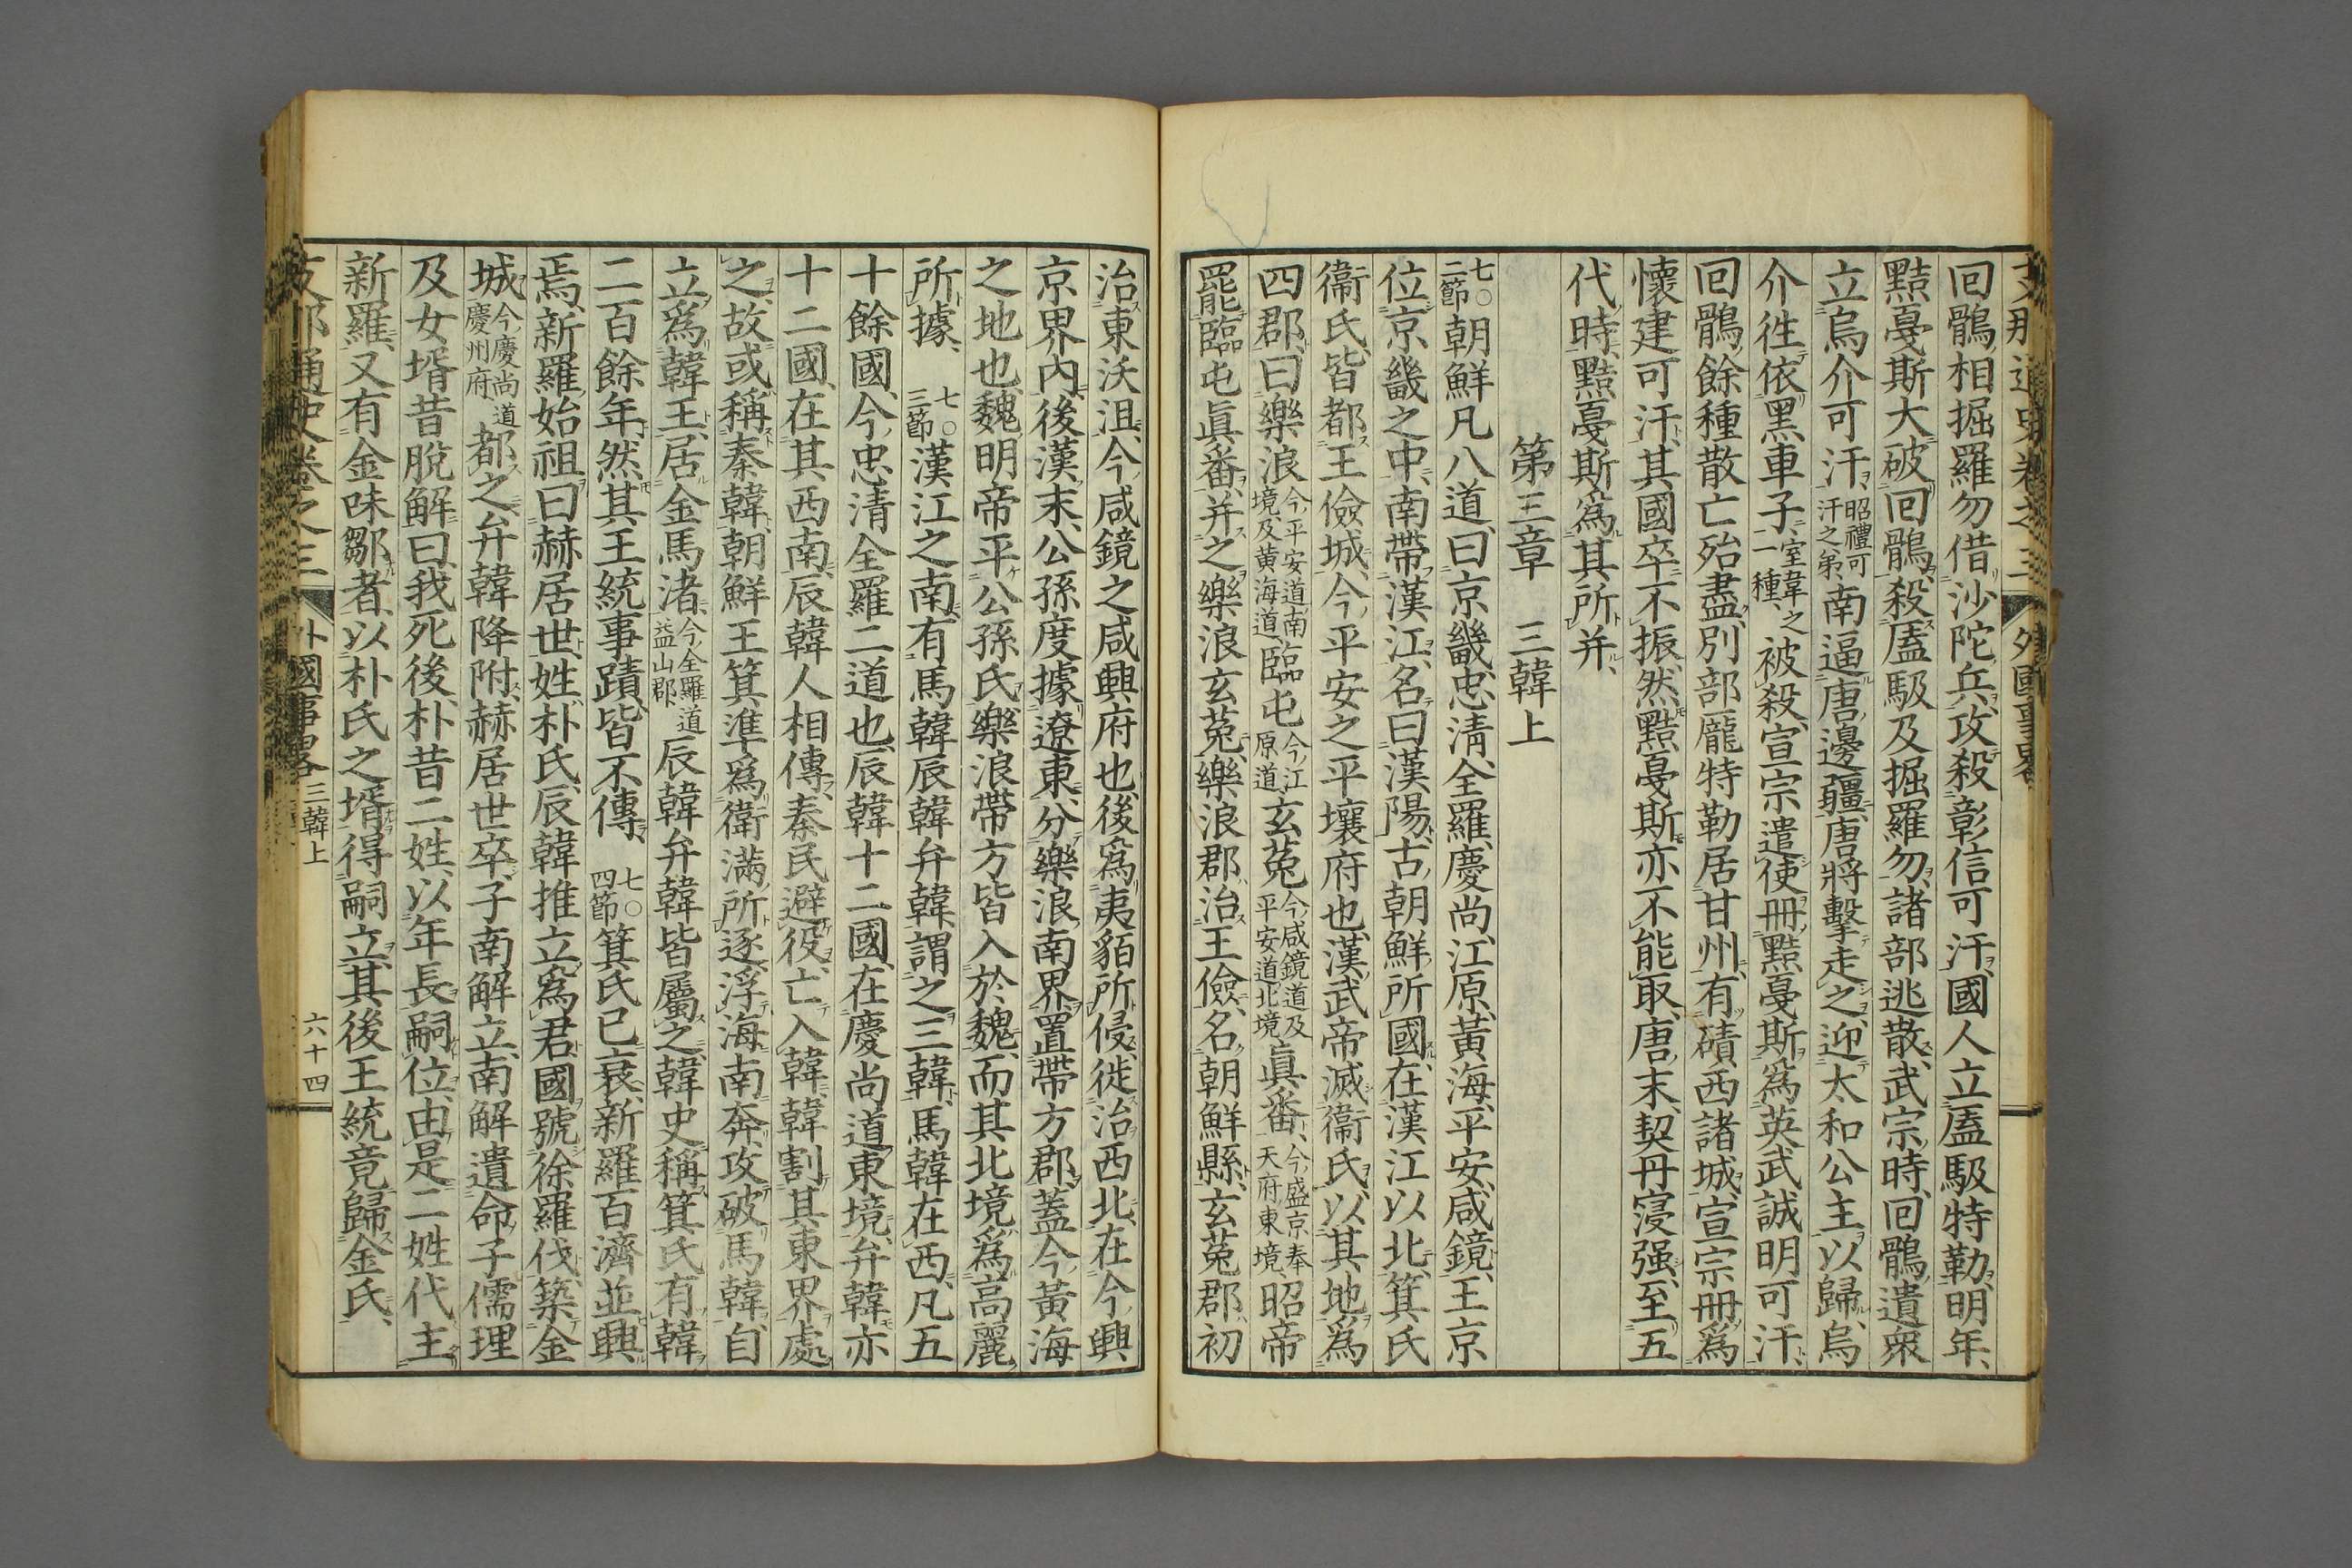 支那通史卷之三 外國事畧
回鶻相掘羅勿借沙陀兵攻殺彰信可汗、國人立㕎馺特勒、明年、
黠戞斯大破回鶻、殺㕎馺及掘羅勿、諸部逃散、武宗時、回鶻遺衆
立烏介可汗、昭禮可汗之弟、南逼唐邊疆、唐將擊走之、迎太和公主以歸、烏
介徃依黑車子、室韋之一種、被殺、宣宗遣使冊黠戞斯爲英武誠明可汗、
回鶻餘種散亡殆盡、別部龎特勒居甘州、有磧西諸城、宣宗冊爲
懷建可汗、其國卒不振、然黠戞斯亦不能取、唐末、契丹寖强、至五
代時、黠戞斯爲其所并、
第三章 三韓上
七〇二節 朝鮮凡八道、曰京畿、忠淸、全羅、慶尚、江原、黃海、平安、咸鏡、王京
位京畿之中、南帶漢江、名曰漢陽、古朝鮮所國、在漢江以北、箕氏
衞氏、皆都王儉城、今平安之平壤府也、漢武帝滅衞氏、以其地爲
四郡、曰樂浪今平安道南境、及黃海道、臨屯今江原道、玄菟今咸鏡道及平安道北境、眞番、今盛京奉天府東境、昭帝
罷臨屯眞番、并之樂浪玄菟、樂浪郡治王儉、名朝鮮縣、玄菟郡、初
治東沃沮、今咸鏡之咸興府也、後爲夷貊所侵、徙治西北、在今興
京界內、後漢末、公孫度據遼東、分樂浪南界、置帶方郡、蓋今黃海
之地也、魏明帝平公孫氏、樂浪帶方皆入於魏、而其北境、爲高麗
所據、 七〇三節 漢江之南、有馬韓辰韓弁韓、謂之三韓、馬韓在西、凡五
十餘國、今忠清全羅二道也、辰韓十二國、在慶尚道東境、弁韓亦
十二國、在其西南、辰韓人相傳、秦民避役、亡入韓、韓割其東界處
之、故或稱秦韓、朝鮮王箕準爲衛滿所逐、浮海南奔、攻破馬韓、自
立爲韓王、居金馬渚、今全羅道益山郡、辰韓弁韓皆屬之、韓史稱箕氏有韓
二百餘年、然其王統事蹟、皆不傳、 七〇四節 箕氏已衰、新羅百濟並興
焉、新羅始祖曰赫居世、姓朴氏、辰韓推立爲君、國號徐羅伐、築金
城今慶尚道慶州府都之、弁韓降附、赫居世卒、子南解立、南解遺命子儒理
及女壻昔脫解曰、我死後、朴昔二姓、以年長嗣位、由是二姓代主
新羅、又有金味鄒者、以朴氏之壻得嗣立、其後王統竟歸金氏、
支那通史卷之三 外國事畧 三韓上 六十四